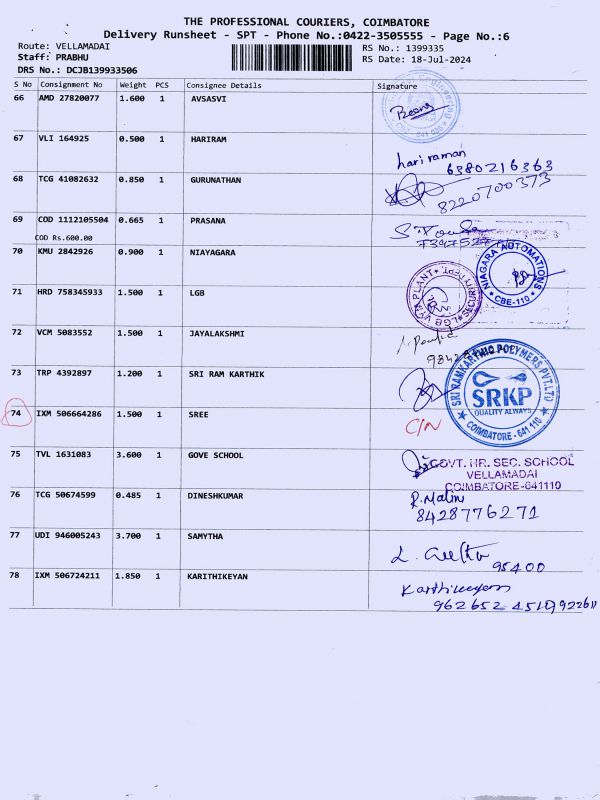 THE PROFESSIONAL COURIERS, COIMBATORE
Delivery Runsheet - SPT - Phone No.:0422-3505555 - Page No.:6
Route: VELLAMADAI RS No.: 1399335
Staff: PRABHU RS Date: 18-Jul-2024
DRS No.: DCJB139933506
S No Consignment No Weight PCS Consignee Details Signature
66 AMD 27820077 1.600 1 AVSASVI
67 VLI 164925 0.500 1 HARIRAM
hariraman
6380216363
68 TCG 41082632 0.850 1 GURUNATHAN
8220700373
69 COD 1112105504 0.665 1 PRASANA
COD Rs.600.00
70 KMU 2842926 0.900 1 NIAYAGARA
NIAGARA AUTOMATIONS
* CBE-110 *
71 HRD 758345933 1.500 1 LGB
LGB VYM PLANT * SECURITY DEPT *
72 VCM 5083552 1.500 1 JAYALAKSHMI
73 TRP 4392897 1.200 1 SRI RAM KARTHIK
SRI RAMKARTHIC POLYMERS PVT.LTD
SRKP
QUALITY ALWAYS
COIMBATORE - 641 110
74 IXM 506664286 1.500 1 SREE
C/N
75 TVL 1631083 3.600 1 GOVE SCHOOL
GOVT. HR. SEC. SCHOOL
VELLAMADAI
COIMBATORE-641110
76 TCG 50674599 0.485 1 DINESHKUMAR
R. Malini
8428776271
77 UDI 946005243 3.700 1 SAMYTHA
95400
78 IXM 506724211 1.850 1 KARITHIKEYAN
Karthikeyan